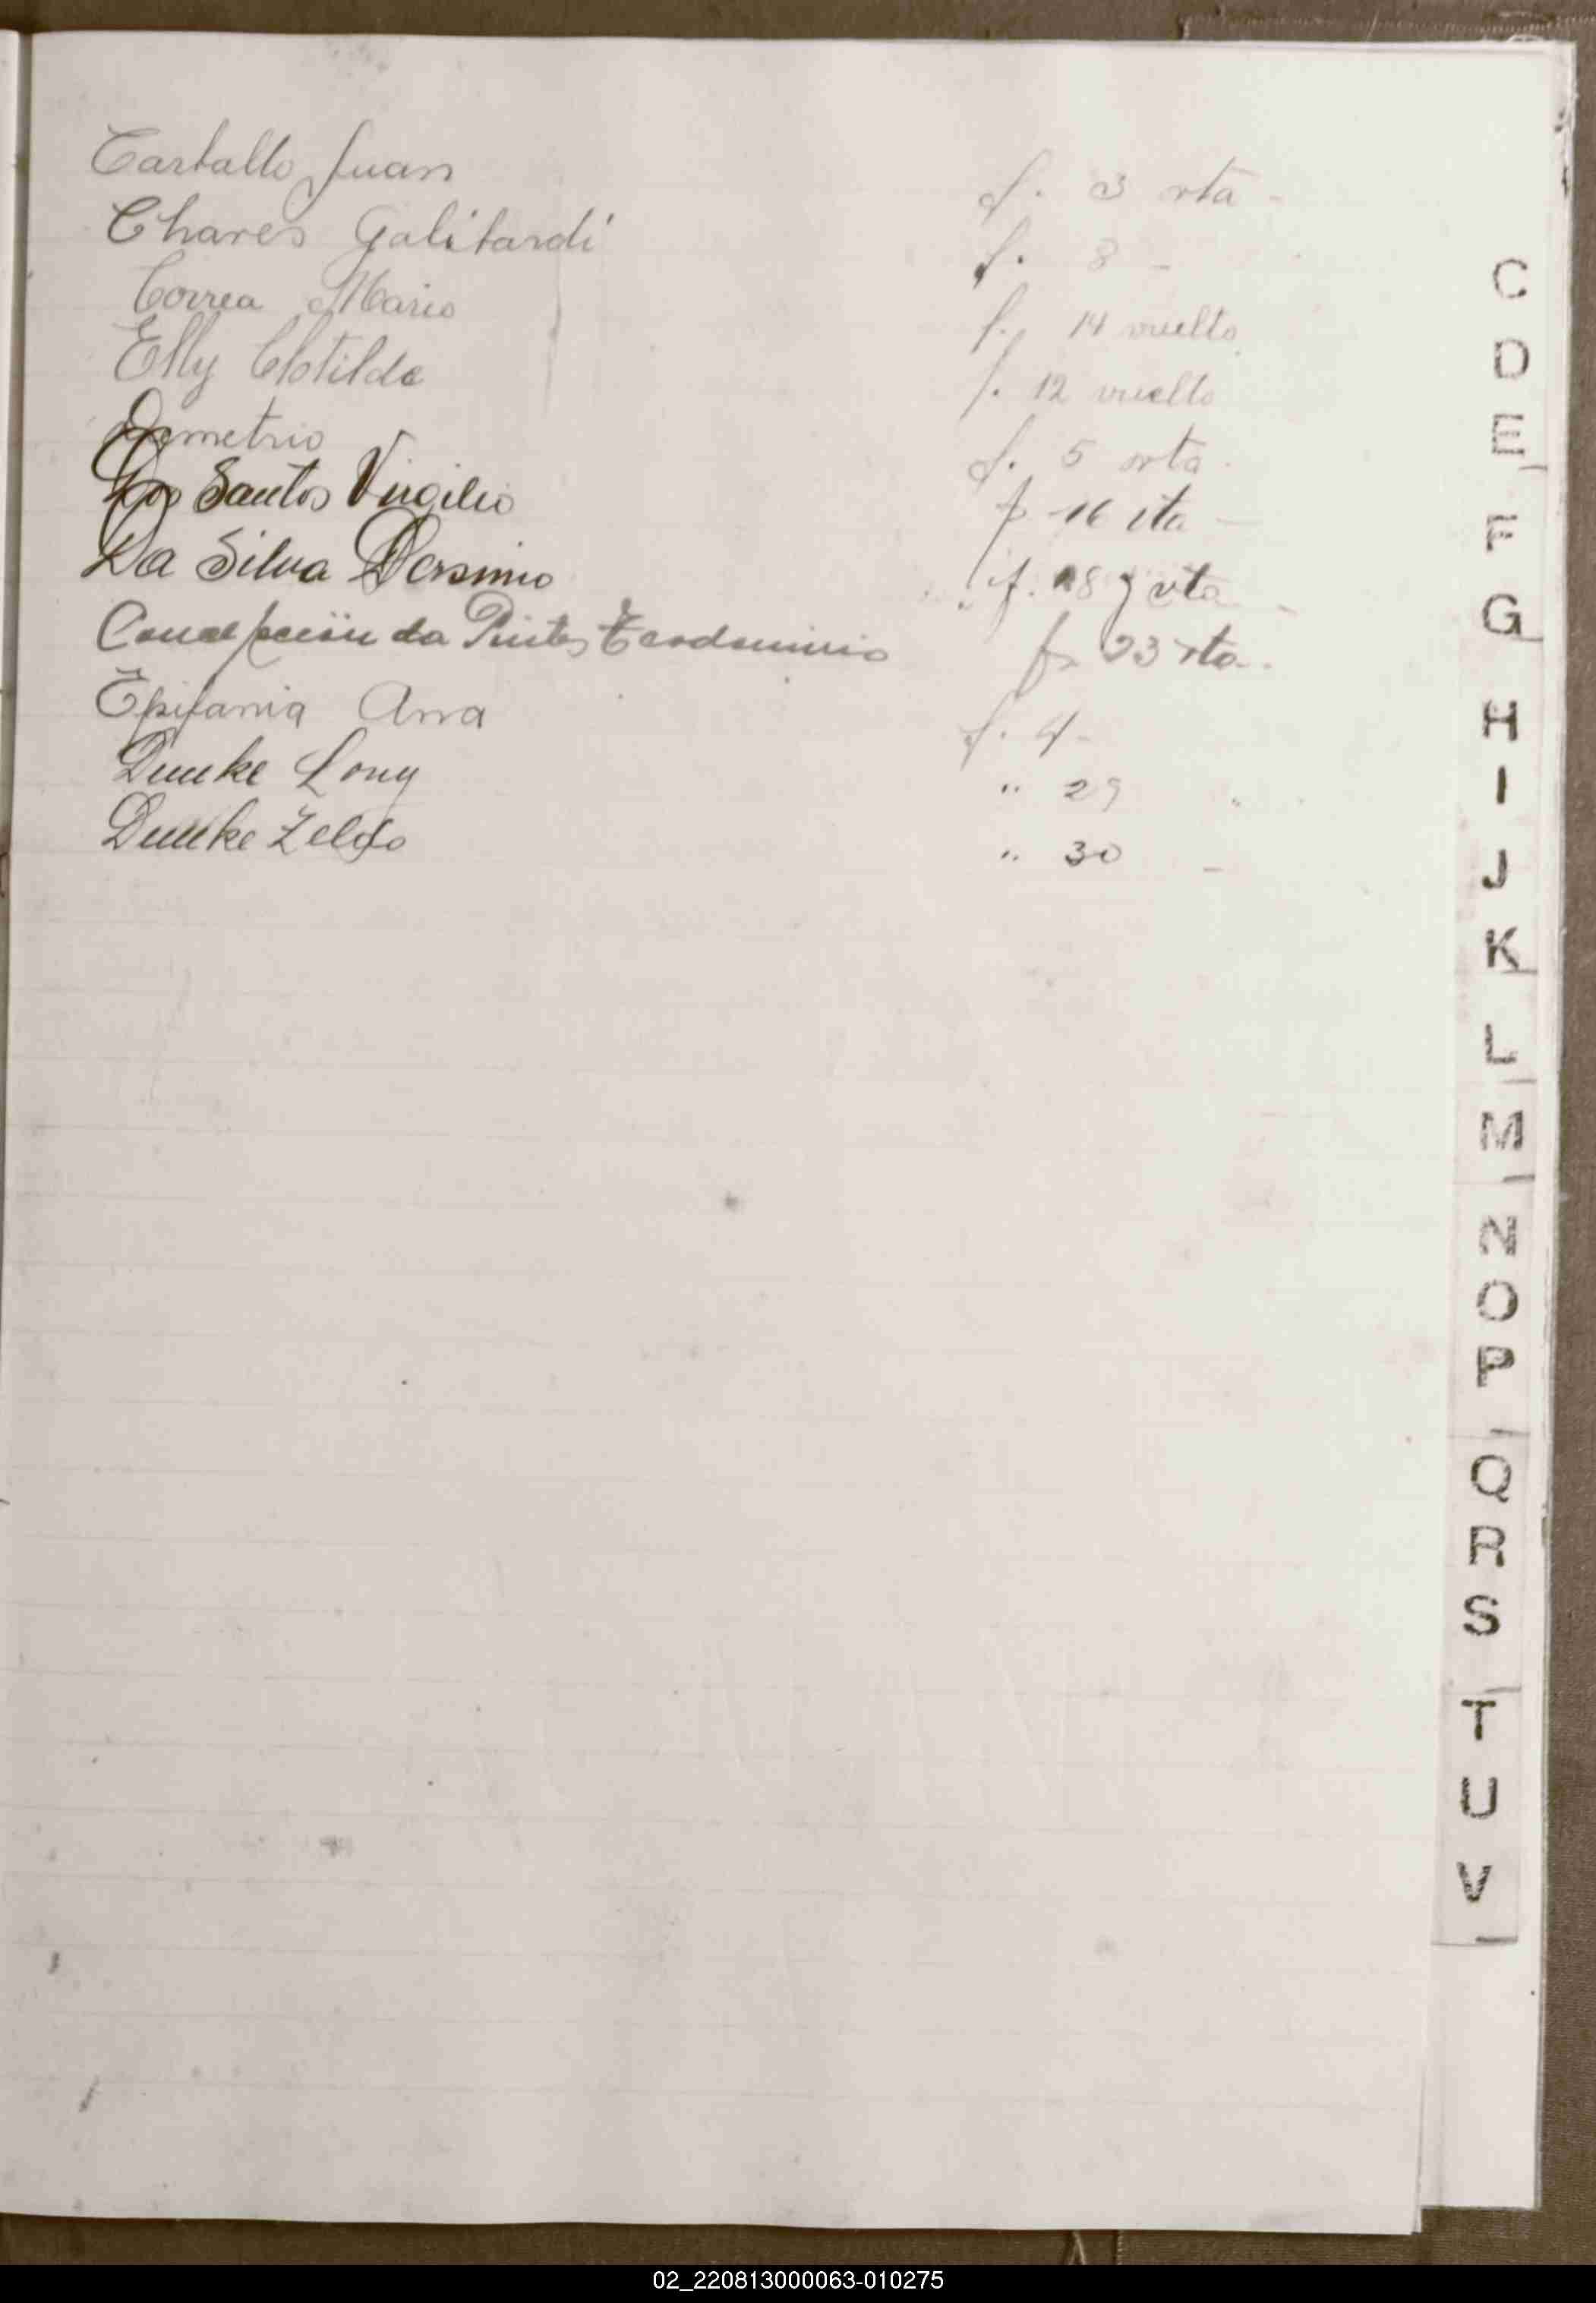 Carballo Juan f. 3 vta -
Chaves Galibardi f. 8 -
Correa Mario f. 14 vuelto
Elly Clotilde f. 12 vuelto
Demetrio f. 5 vta.
Dos Santos Virgilio f 16 vta -
Da Silva f. 18 y vta -
Concepción da Pintos Teodominio f 23 vta.
Epifania Ana f. 4 -
Dumke Lony " 29 "
Dumke Zeldo " 30 -
C
D
E
F
G
H
I
J
K
L
M
N
O
P
Q
R
S
T
U
V
02_220813000063-010275